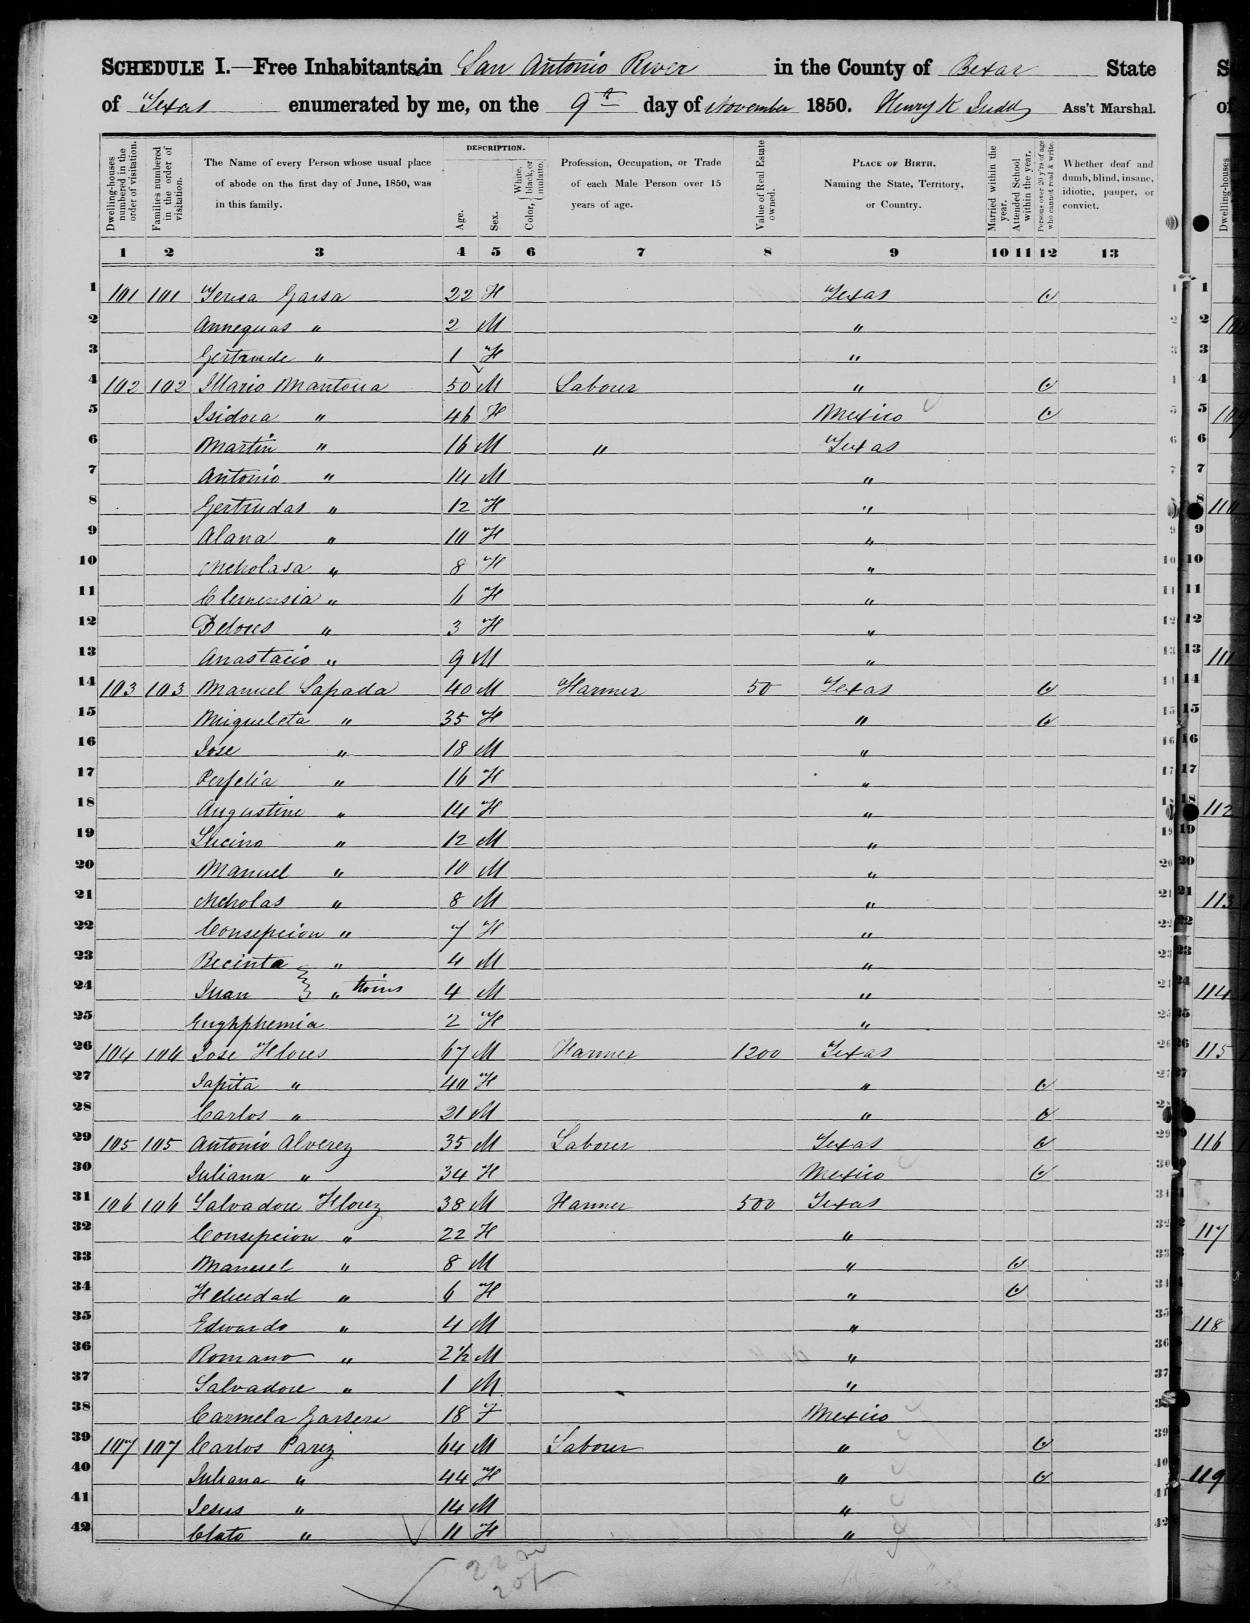 SCHEDULE I.—Free Inhabitants in San Antonio River in the County of Bexar State
of Texas enumerated by me, on the 9th day of November 1850. Henry K Judd Ass't Marshal.
Dwelling-houses numbered in the order of visitation.
Families numbered in the order of visitation.
The Name of every Person whose usual place of abode on the first day of June, 1850, was in this family.
DESCRIPTION.
Age.
Sex.
Color, { White, black, or mulatto.
Profession, Occupation, or Trade of each Male Person over 15 years of age.
Value of Real Estate owned.
PLACE OF BIRTH. Naming the State, Territory, or Country.
Married within the year.
Attended School within the year.
Persons over 20 y'rs of age who cannot read & write.
Whether deaf and dumb, blind, insane, idiotic, pauper, or convict.
1 2 3 4 5 6 7 8 9 10 11 12 13
1 101 101 Garsa 22 F Texas
2 Annequas " 2 M "
3 Gertrude " 1 F "
4 102 102 Illario Mantoua 50 M Labourer "
5 Isidora " 46 F Mexico
6 Martin " 16 M " Texas
7 Antonio " 14 M "
8 Gertrudas " 12 F "
9 Alana " 10 F "
10 Nicholasa " 8 F "
11 Clemensia " 6 F "
12 Delores " 3 F "
13 Anastacio " 9 M "
14 103 103 Manuel Sapada 40 M Farmer 50 Texas
15 Migueleta " 35 F "
16 Jose " 18 M "
17 Perfelia " 16 F "
18 Augustine " 14 F "
19 " 12 M "
20 Manuel " 10 M "
21 Nicholas " 8 M "
22 Consepcion " 7 F "
23 Becinta " 4 M "
24 Juan " twins 4 M "
25 2 F "
26 104 104 Jose Flores 67 M Farmer 1200 Texas
27 Japita " 40 F "
28 Carlos " 21 M "
29 105 105 Antonio Alverez 35 M Labourer Texas
30 Juliana " 34 F Mexico
31 106 106 Salvadore Florez 38 M Farmer 500 Texas
32 Consepcion " 22 F "
33 Manuel " 8 M "
34 Felicedad " 6 F "
35 Edwardo " 4 M "
36 Romano " 2½ M "
37 Salvadore " 1 M "
38 Carmela 18 F Mexico
39 107 107 Carlos Parez 64 M Labourer "
40 Juliana " 44 F "
41 Jesus " 14 M "
42 Clato " 11 F "
22 m
20 f